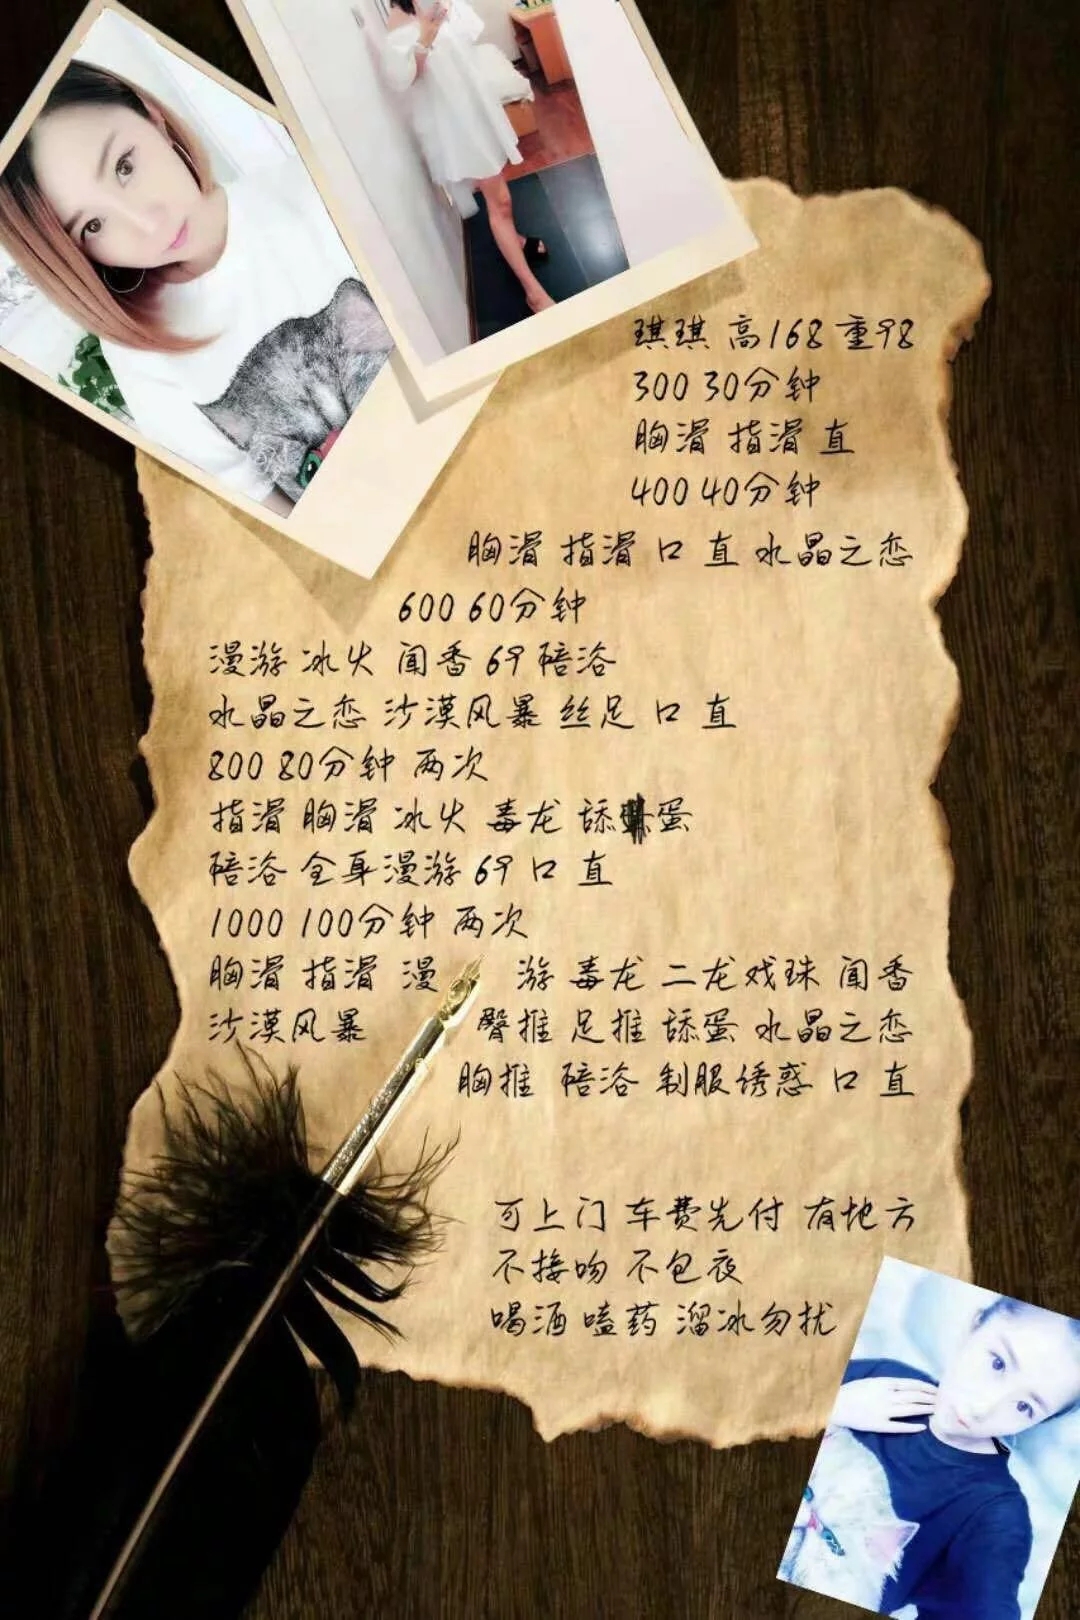 琪琪 高168 重98
300 30分钟
胸滑 指滑 直
400 40分钟
胸滑 指滑 口 直 水晶之恋
600 60分钟
漫游 冰火 闻香 69 陪浴
水晶之恋 沙漠风暴 丝足 口 直
800 80分钟 两次
指滑 胸滑 冰火 毒龙 舔 蛋
陪浴 全身漫游 69 口 直
1000 100分钟 两次
胸滑 指滑 漫 游 毒龙 二龙戏珠 闻香
沙漠风暴 臀推 足推 舔蛋 水晶之恋
胸推 陪浴 制服诱惑 口 直
可上门 车费先付 有地方
不接吻 不包夜
喝酒 嗑药 溜冰勿扰